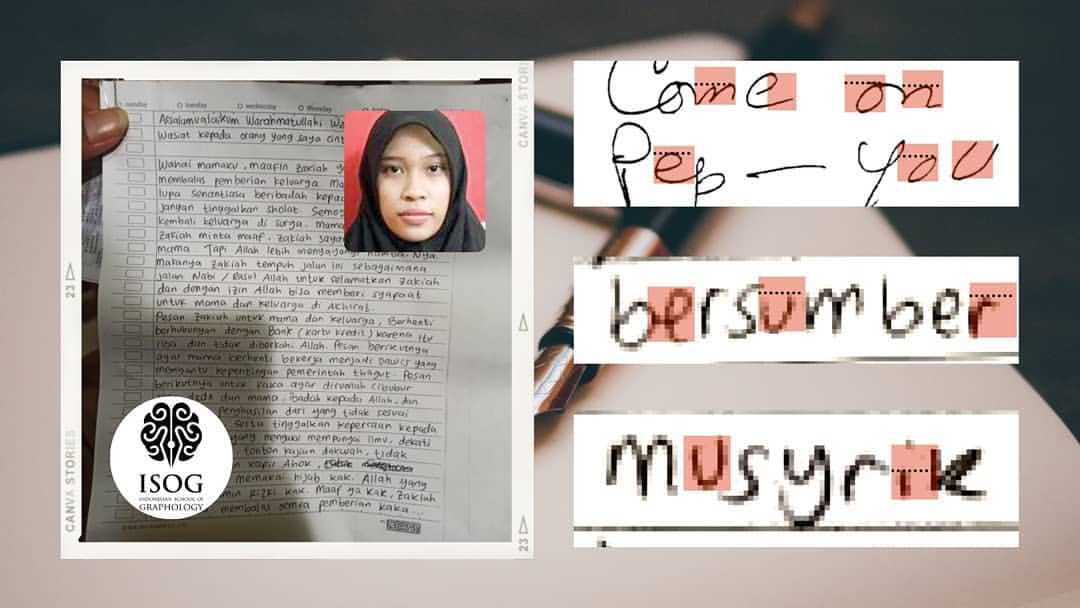 sunday
tuesday
wednesday
thursday
Assalamualaikum Warahmatullahi
Wasiat kepada orang yang saya cint
Wahai mamaku, maafin zakiah
membalas pemberian keluarga
lupa senantiasa beribadah kepad
jangan tinggalkan sholat. Semog
kembali keluarga di surga. mama
zakiah minta maaf, zakiah saya
mama. Tapi Allah lebih menyayangi hamba Nya.
Makanya zakiah tempuh jalan ini sebagaimana
jalan Nabi / Rasul Allah untuk selamatkan zakiah
dan dengan izin Allah bisa memberi syafaat
untuk mama dan keluarga di Akhirat.
Pesan zakiah untuk mama dan keluarga, Berhenti
berhubungan dengan Bank (kartu kredit) karena itu
riba dan tidak diberkahi Allah. Pesan berikutnya
agar mama berhenti bekerja menjadi Dawis yang
membantu kepentingan pemerintah thogut. Pesan
berikutnya untuk kaka agar dirumah cibubur
dede dan mama, ibadah kepada Allah, dan
penghasilan dari yang tidak sesuai
serta tinggalkan kepercaan kepada
yang mengaku mempunyai ilmu, dekati
tonton kajian dakwah, tidak
kafir Ahok,
memakai hijab kak. Allah yang
min rizki kak. Maaf ya kak, zakiah
membalas semua pemberian kaka...
ISOG
INDONESIAN SCHOOL OF
GRAPHOLOGY
CANVA STORIES
23
CANVA STORI
23
Come on
Pep — you
bersumber
musyrik